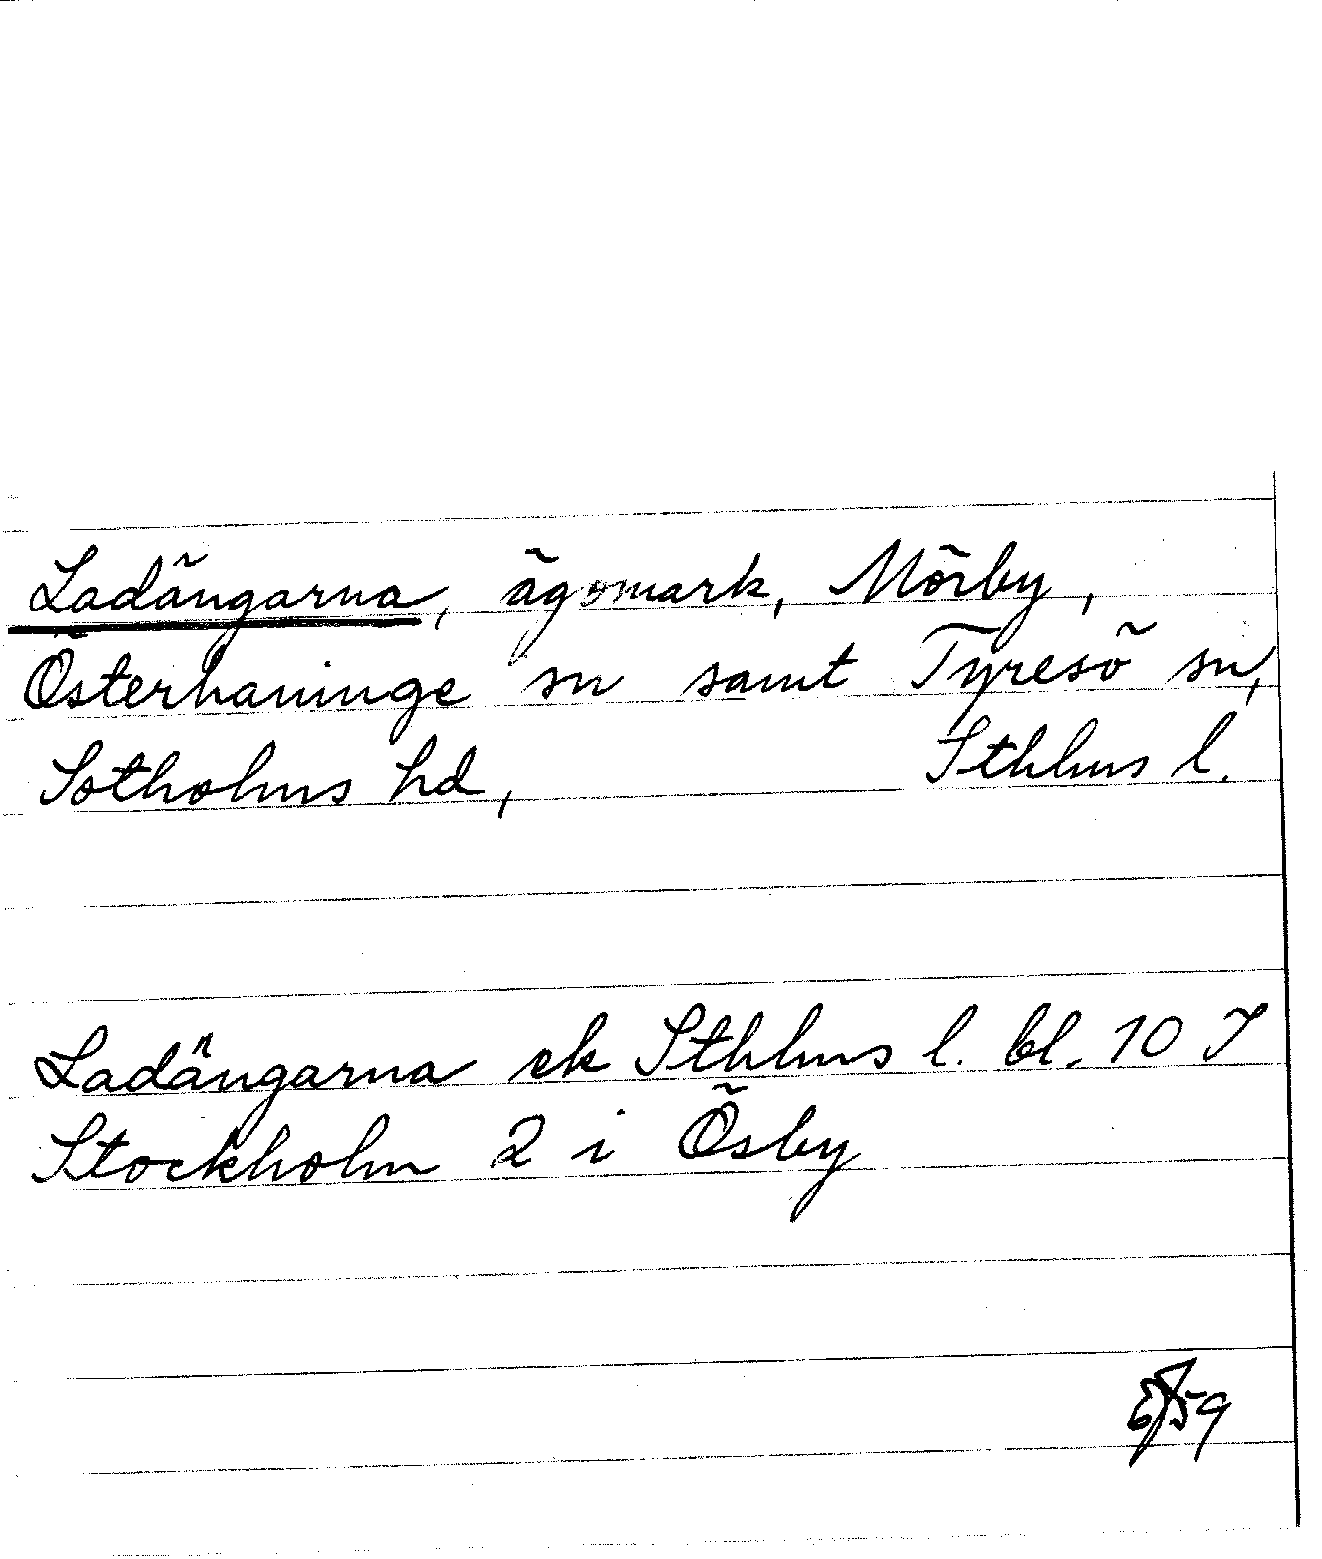 Ladängarna, ägomark, Mörby,
Österhaninge sn samt Tyresö sn,
Sotholms hd, Sthlms l.
Ladängarna ek Sthlms l. bl. 10 I
Stockholm 2 i Ösby